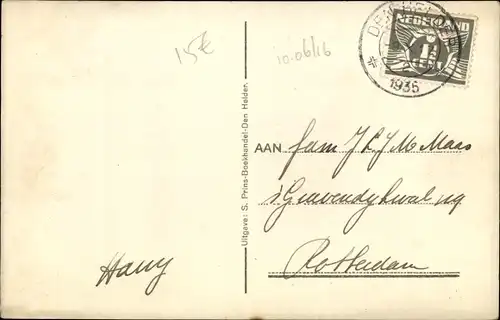 15€
10.06/16
DEN HELDER
1935
NEDERLAND
1½
Uitgave: S. Prins-Boekhandel-Den Helder.
AAN
Fam J L J M Maas
Rotterdam
Hany